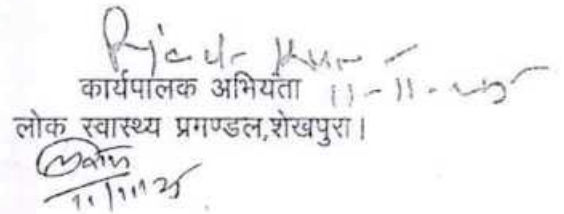 कार्यपालक अभियंता 11-11-25
लोक स्वास्थ्य प्रगण्डल,शेखपुरा।
11/11/25